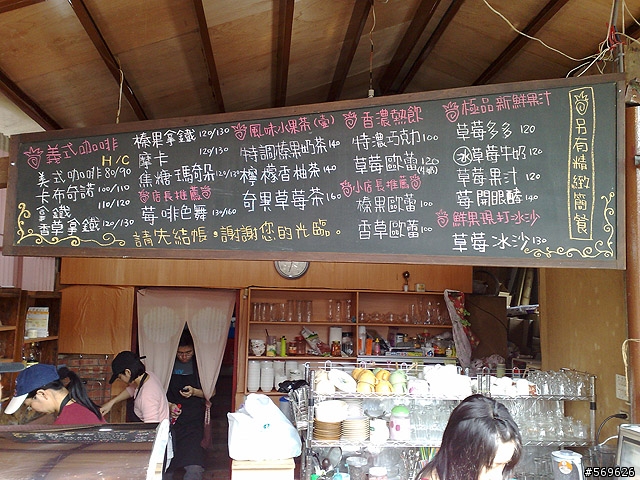 義式咖啡
H/C
美式咖啡 80/90
卡布奇諾 100/110
拿鐵 110/120
香草拿鐵 120/130
榛果拿鐵 120/130
摩卡 129/130
焦糖瑪奇朵 129/139
店長推薦
莓啡色舞 130/160
風味小果茶(壺)
特調榛果奶茶 140
檸檬香柚茶 140
奇果草莓茶 160
請先結帳,謝謝您的光臨。
香濃熱飲
特濃巧克力 100
草莓歐蕾 120
小店長推薦
榛果歐蕾 100
香草歐蕾 100
極品新鮮果汁
草莓多多 120
冰草莓牛奶 120
草莓果汁 120
莓開眼醋 140
鮮果現打冰沙
草莓冰沙 130
另有精緻簡餐
#569626